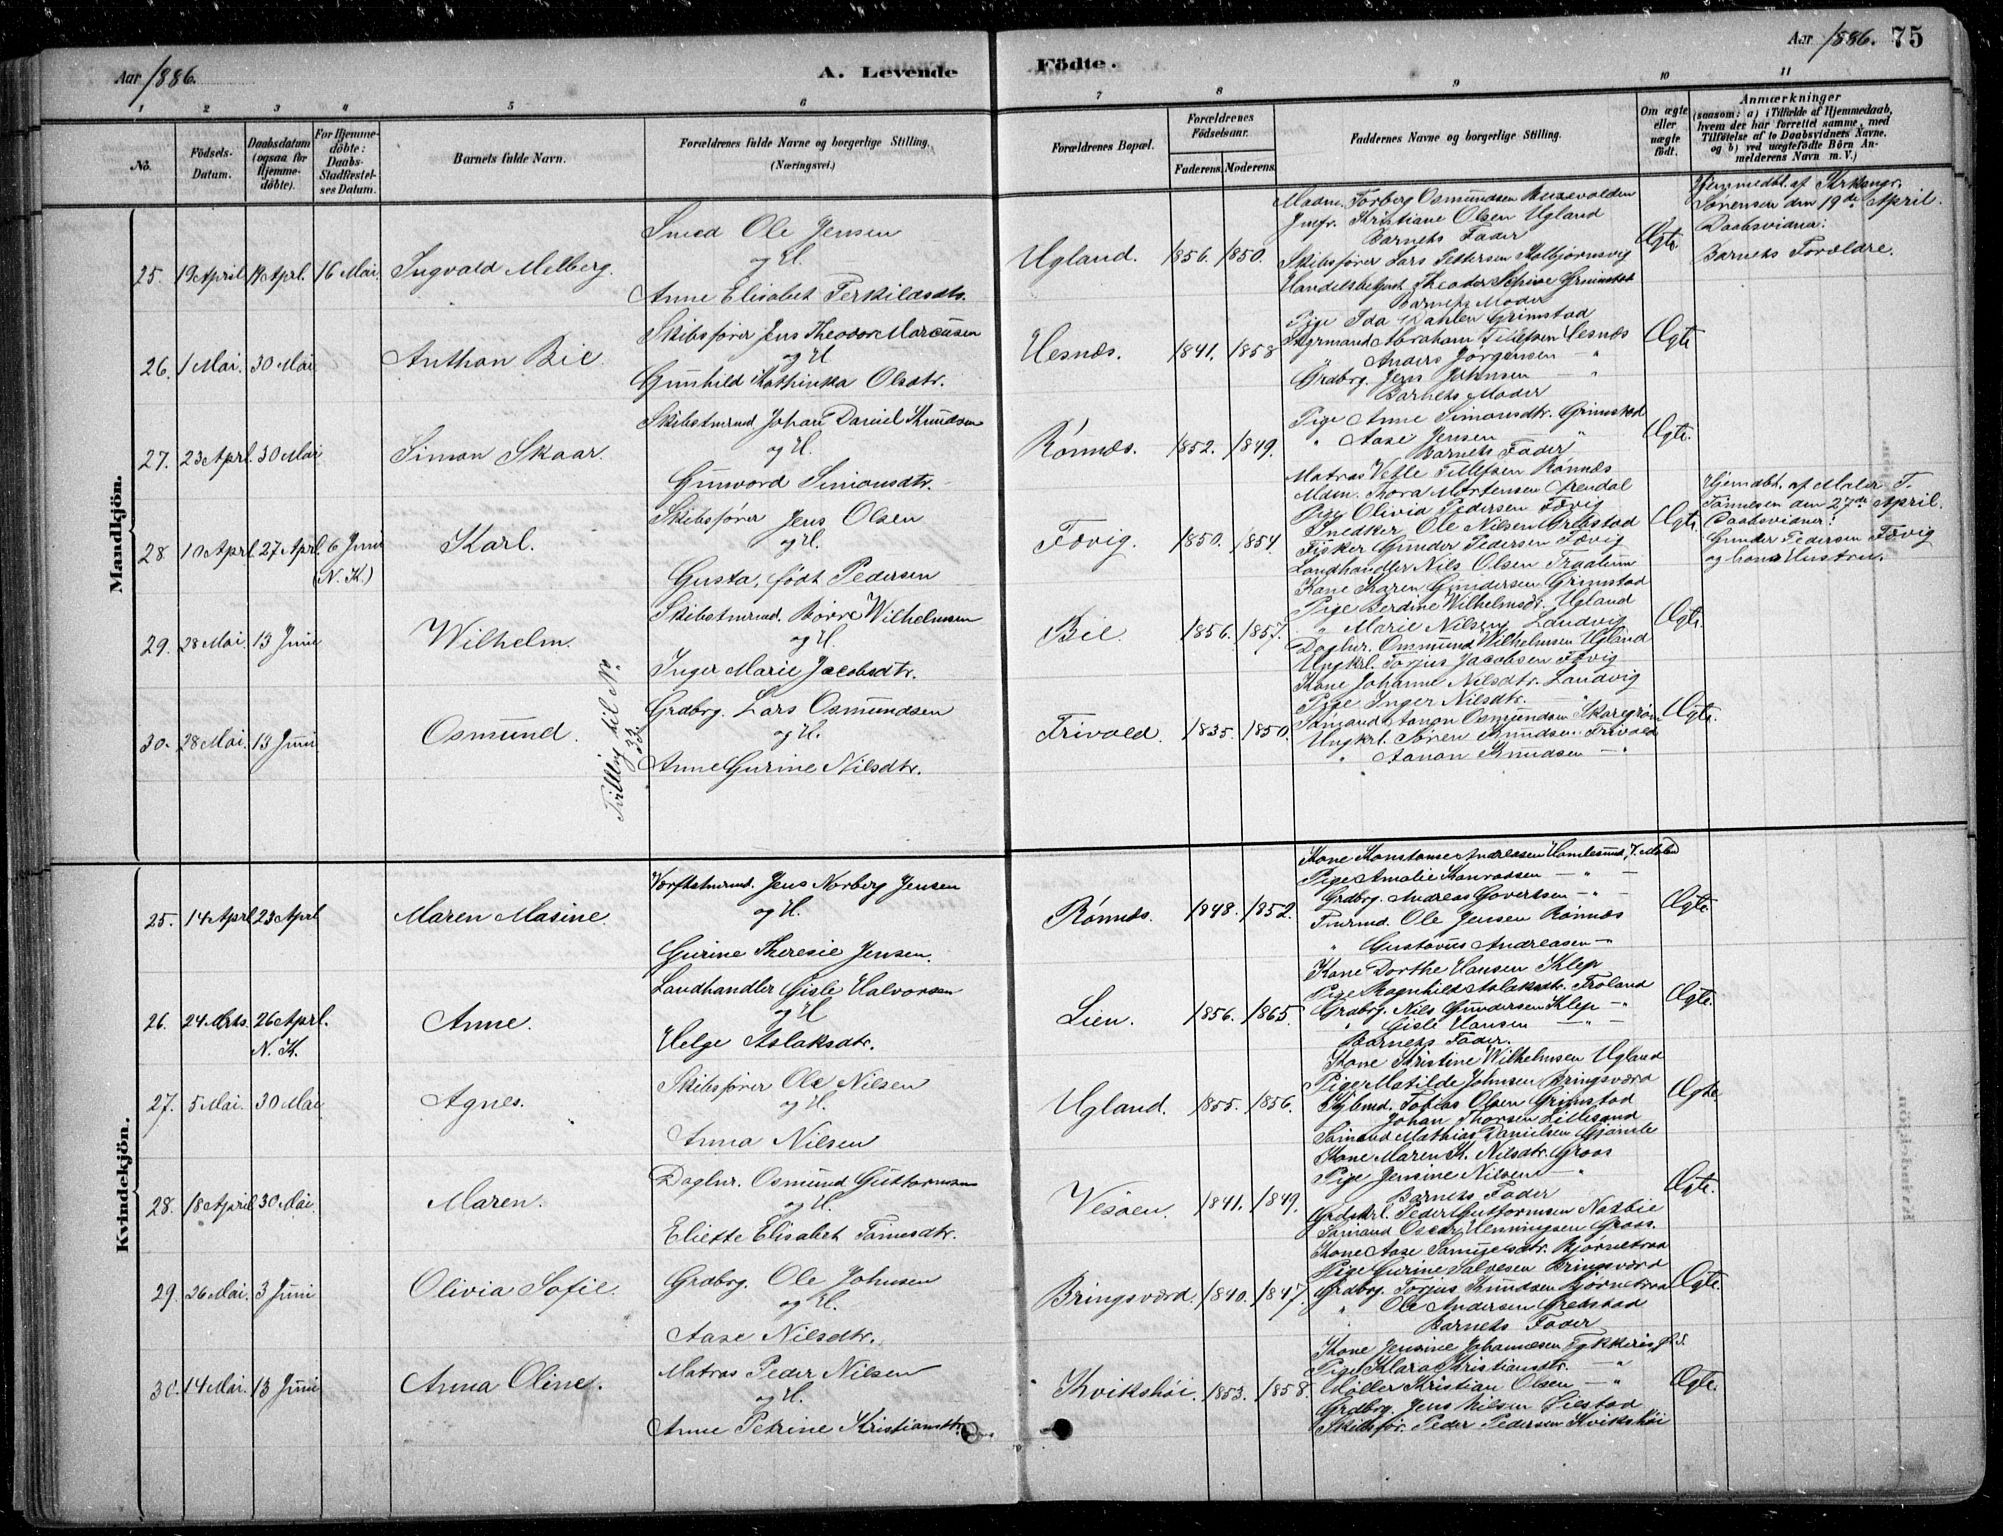 Aar 1886.
A. Levende
Födte.
Aar 1886. 75
1 2 3 4 5 6 7 8 9 10 11
No.
Födsels-Datum.
Daabsdatum (ogsaa for Hjemmedöbte).
For Hjemmedöbte: Daabs-Stadfæstelses Datum.
Barnets fulde Navn.
Forældrenes fulde Navne og borgerlige Stilling.
(Næringsvei.)
Forældrenes Bopæl.
Forældrenes Födselsaar.
Faderens. Moderens.
Faddernes Navne og borgerlige Stilling.
Om ægte eller uægte födt.
Anmærkninger
(saasom: a) i Tilfælde af Hjemmedaab, hvem der har forrettet samme, med Tilföielse af to Daabsvidners Navne, og b) ved uægtefödte Börn Anmelderens Navn m. V.)
Mandkjön.
25. 19 April 19 Aprl. 16 Mai. Ingvald Melberg.
Smed Ole Jensen
og H.
Anne Elisabet Terkildsdtr.
Ugland. 1856. 1850.
Madm. Torberg Osmundsen
Jmfr. Kristiane Olsen Ugland
Barnets Fader
Skibsfører Lars Pettersen
Theodor Schive Grimstad
Barnets Moder
Ægte
Hjemmedbt. af Kirkesngr.
Sørensen den 19de April.
Daabsvidner:
Barnets Forældre.
26. 1 Mai. 30 Mai. Anthon Bie
Skibsfører Jens Theodor Marcusen
og H
Gunhild Mathinka Olsdtr.
Hesnæs. 1841. 1858
Pige Ida Dahlen Grimstad
Styrmand Abraham Tellefsen Hesnæs
" Anders Jørgensen — "
Grdbrg. Jens Johnsen — "
Barnets Moder
Ægte
27. 23 Aprl. 30 Mai Simon Skaar.
Skibstmrmd Johan Daniel Knudsen
og H.
Gunvord Simonsdtr.
Rønnæs. 1852. 1849.
Pige Anne Simonsdtr. Grimstad
" Aase Jensen — "
Barnets Fader
Matros Vetle Tellefsen Rønnæs
Ægte.
28. 10 Aprl. 27 Aprl. 6 Juni
(N. K.)
Karl.
Skibsfører Jens Olsen
og H.
Gusta, født Pedersen
Fævig. 1850. 1854.
Mdm. Thora Mortensen Arendal
Pige Olivia Pedersen Fævig
Snedker Ole Nilsen Grebstad
Fisker Gunder Pedersen Fævig
Landhandler Nils Olsen
Ægte.
Hjemdbt. af Maler T.
Tønnesen den 27de April.
Daabsvidner:
Gunder Pedersen Fævig
og hans Hustru.
29. 28 Mai. 13 Juni Wilhelm.
Skibstmrmd. Børre Wilhelmsen
og H.
Inger Marie Jacobsdtr.
Bie. 1856. 1857.
Kone Karen Gundersen Grimstad
Pige Berdine Wilhelmsdr. Ugland
" Marie Nilsen Landvig
Daglnr. Osmund Wilhelmsen Ugland
Ungkrl. Torjus Jacobsen Fævig
Ægte.
30. 28 Mai. 13 Juni Osmund.
Tvilling til No 33
Grdbrg. Lars Osmundsen
og H.
Anne Gurine Nilsdtr.
Trivold. 1835. 1850.
Kone Johanne Nilsdtr. Landvig
Pige Inger Nilsdtr. "
Sømand Aanon Osmundsen
Ungkrl. Søren Knudsen Trivold
" Aanon Knudsen — "
Ægte.
Kvindekjön.
25. 14 Aprl 23 Aprl Maren Masine.
Værftstmrmd. Jens Norberg Jensen
og H.
Gurine Theresie Jensen.
Rønnæs. 1848. 1852.
Kone Konstanse Andreasen
Pige Amalie Konradsen — " —
Grdbrg. Andreas Govertsen — " —
Tmrmd. Ole Jensen Rønnæs
" Gustavus Andreasen — "
Ægte.
26. 24 Mrts. 26 Aprl.
N. K.
Anne.
Landhandler Gisle Halvorsen
og H
Helge Aslaksdtr.
Lien. 1856. 1865.
Kone Dorthe Hansen Klep
Pige Ragnhild Aslaksdtr. Froland
Grdbrg. Nils Gundersen Klep — "
" Gisle Hansen — " —
Barnets Fader.
Ægte.
27. 5 Mai. 30 Mai Agnes.
Skibsfører Ole Nilsen
og H.
Anna Nilsen
Ugland. 1855. 1856.
Kone Kristine Wilhelmsen Ugland
Pige Matilde Johnsen Bringsværd
Tobias Olsen Grimstad
Johan Thorsen Lillesand
Sømand Mathias Danielsen Gjømle
Ægte
28. 18 April 30 Mai. Maren.
Daglnr. Osmund Guttormsen
og H.
Eliette Elisabet Tønnesdtr.
Vesøen. 1841. 1849.
Kone Maren K. Nilsdtr. Groos
Pige Jensine Nilsen — "
Barnets Fader
Peder Guttormsen
Sømand Oscar Henningsen Groos.
Ægte.
29. 26 Mai. 3 Juni Olivia Sofie.
Grdbrg. Ole Johnsen
og H.
Aase Nilsdtr.
Bringsværd. 1840. 1847.
Kone Aase Samuelsdtr. Bjørnetraa
Pige Gurine Salvesen Bringsværd
Grdbrg. Torjus Knudsen Bjørnetraa
" Ole Andersen Grebstad
Barnets Fader
Ægte.
30. 14 Mai. 13 Juni Anna Oline.
Matros Peder Nilsen
og H.
Anne Petrine Kristiansdtr.
Kvikshøi. 1853. 1858.
Kone Jensine Johannesen
Pige Klara Kristiansdtr. — "
Møller Kristian Olsen — "
Grdbrg. Jens Nilsen
Skibsfør. Peder Pedersen Kvikshøi
Ægte.